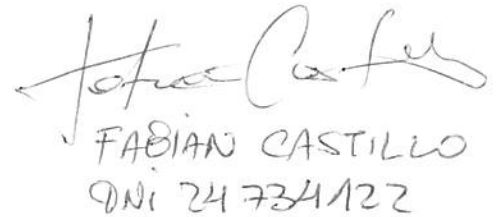 FABIAN CASTILLO
DNI 24734122